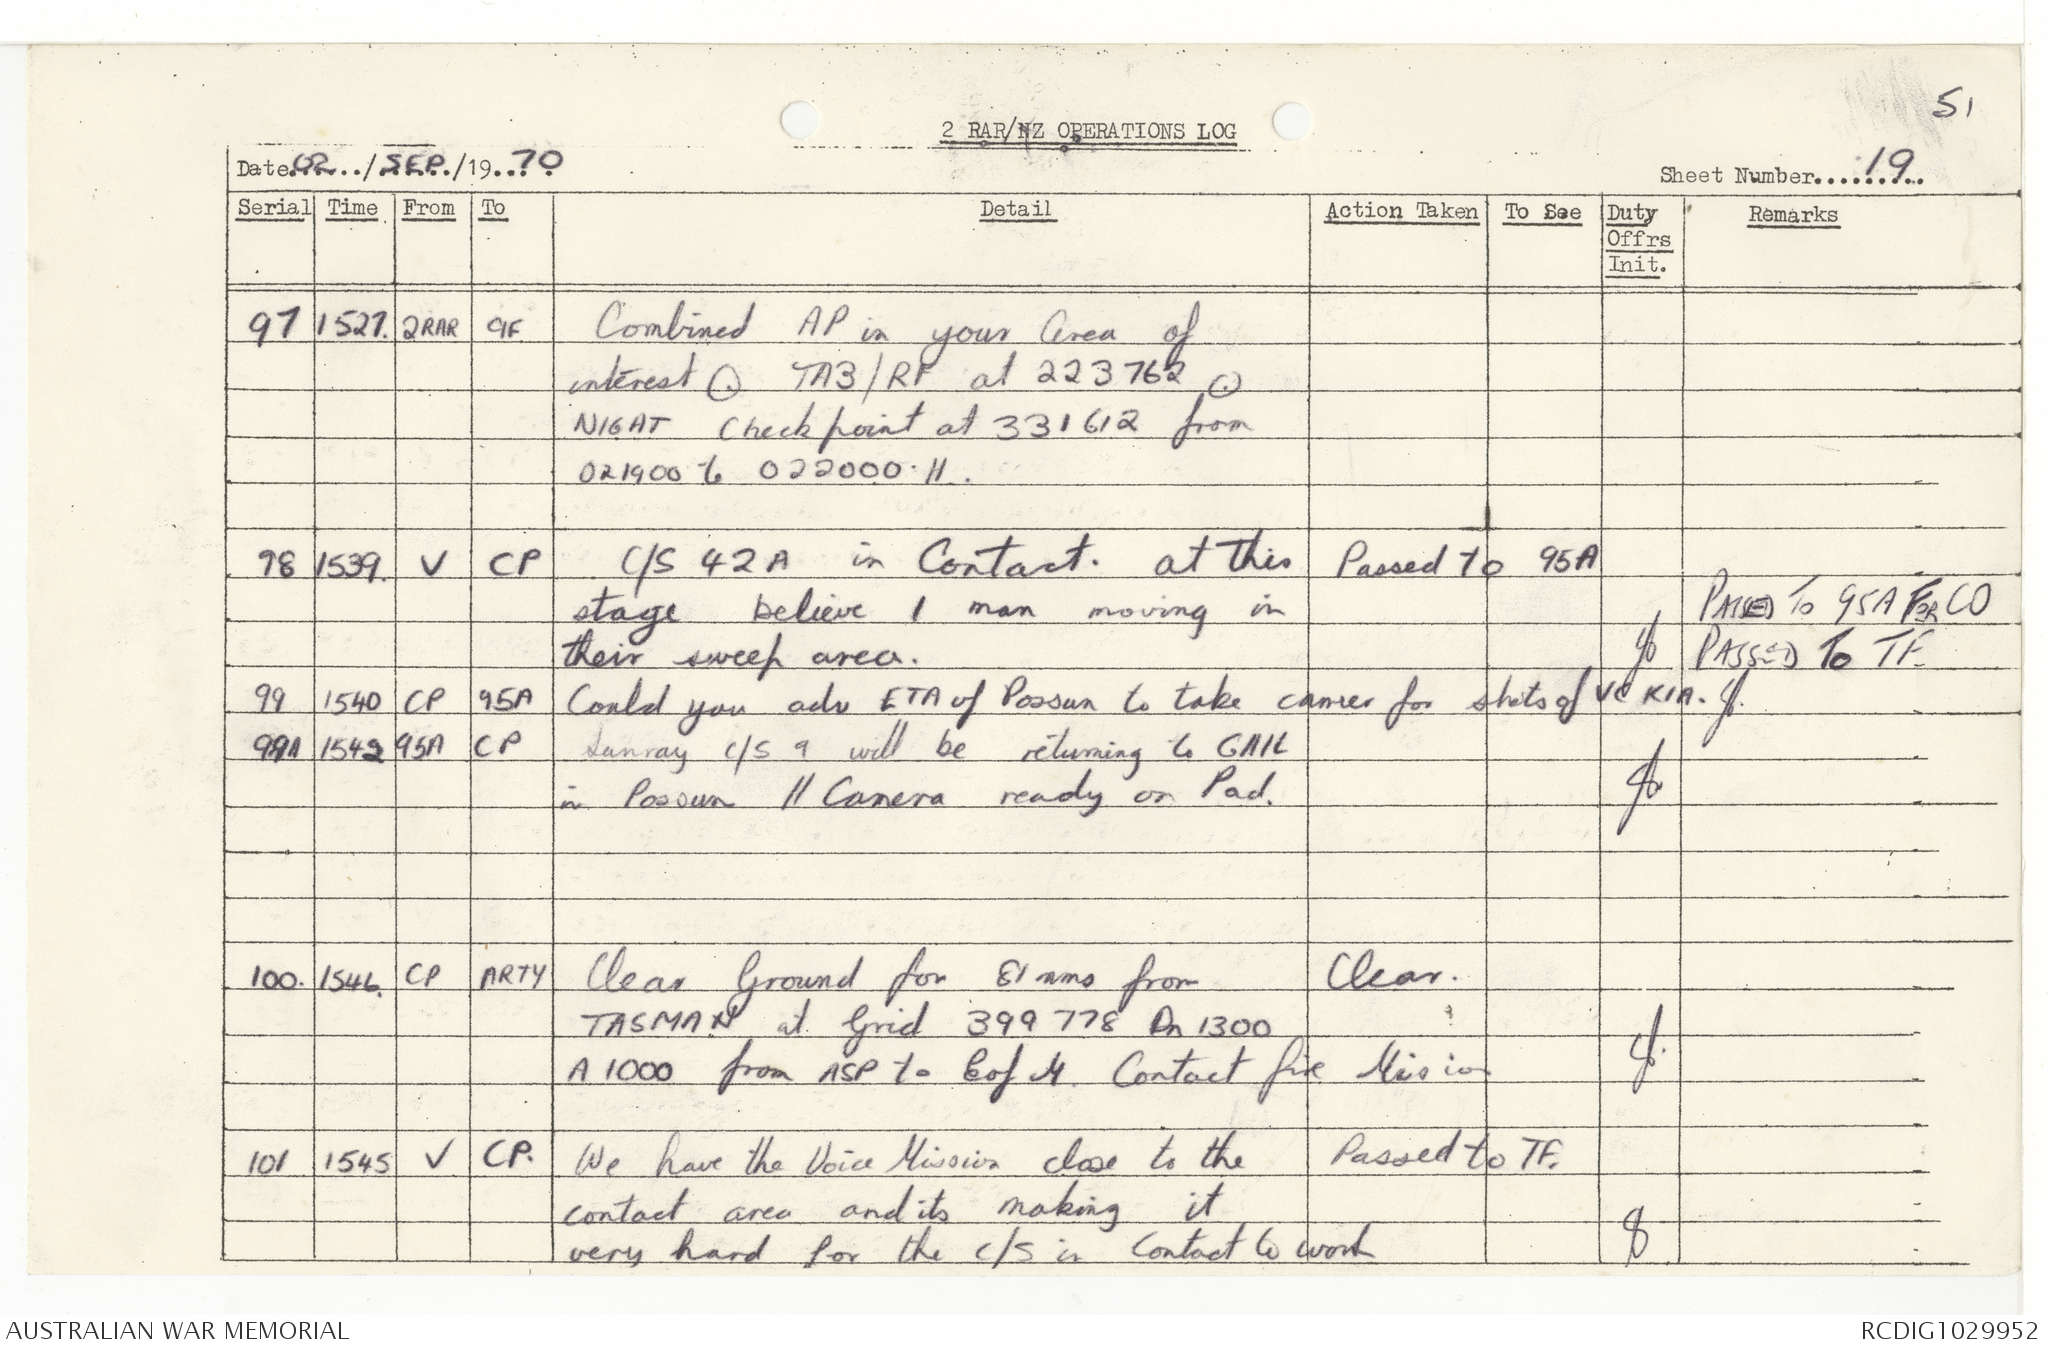 51
2 RAR/NZ OPERATIONS LOG
Date 02../SEP./19..70
Sheet Number.....19..
Serial Time From To Detail Action Taken To See Duty Offrs Init. Remarks
97 1527. 2RAR 9F Combined AP in your area of
interest (.) TAB/RF at 223762 (.)
NIGAT Checkpoint at 331612 from
021900 to 022000.H.
98 1539. V CP C/S 42A in Contact. at this Passed to 95A
stage believe 1 man moving in PASSED To 95A FOR CO
their sweep area. PASSED To TF
99 1540 CP 95A Could you adv ETA of Possun to take camrer for shots of VC KIA.
99A 1542 95A CP Sunray C/S 9 will be returning to GAIL
in Possun // Camera ready on Pad.
100. 1546. CP ARTY Clear Ground for 81 mms from Clear.
TASMAN at Grid 399778 Dn 1300
A 1000 from ASP to Eof M. Contact fire Mision
101 1545 V CP. We have the Voice Mission close to the Passed to TF.
contact area and its making it
very hard for the C/S in Contact to work
AUSTRALIAN WAR MEMORIAL
RCDIG1029952